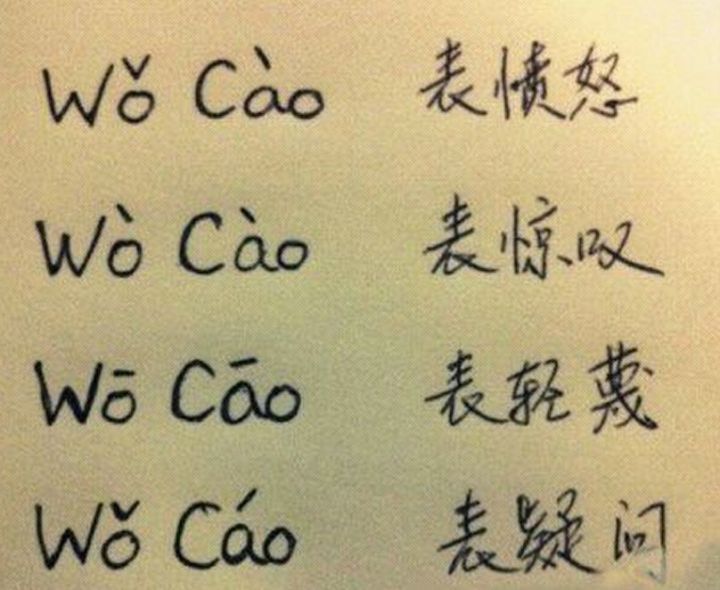 Wǒ Cào 表愤怒
Wò Cào 表惊叹
Wō Cāo 表轻蔑
Wǒ Cáo 表疑问